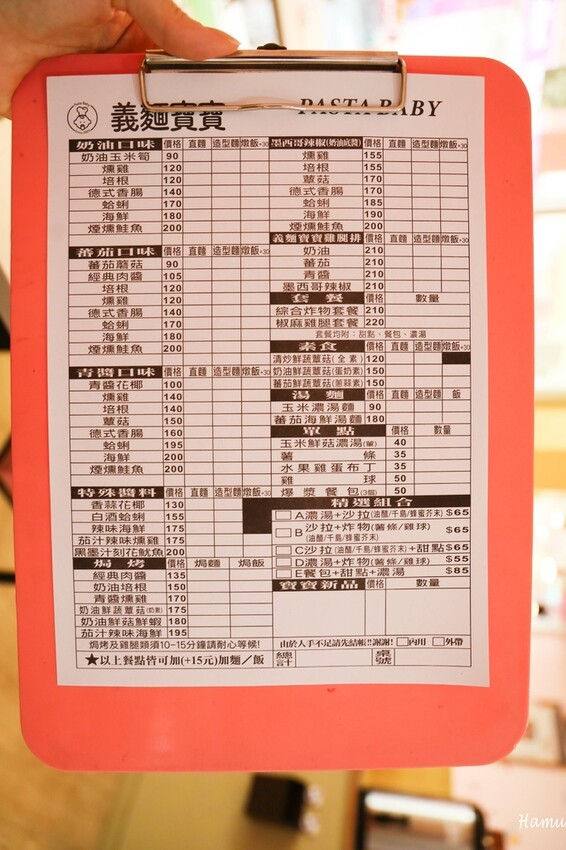 義麵寶寶 PASTA BABY
奶油口味 價格 直麵 造型麵 燉飯+30
奶油玉米筍 90
燻雞 120
培根 120
德式香腸 140
蛤蜊 170
海鮮 180
煙燻鮭魚 200
蕃茄口味 價格 直麵 造型麵 燉飯+30
蕃茄蘑菇 90
經典肉醬 105
培根 120
燻雞 120
德式香腸 140
蛤蜊 170
海鮮 180
煙燻鮭魚 200
青醬口味 價格 直麵 造型麵 燉飯+30
青醬花椰 100
燻雞 140
培根 140
蕈菇 150
德式香腸 160
蛤蜊 195
海鮮 200
煙燻鮭魚 200
特殊醬料 價格 直麵 造型麵 燉飯+30
香蒜花椰 130
白酒蛤蜊 155
辣味海鮮 175
茄汁辣味燻雞 175
黑墨汁刻花魷魚 200
焗烤 價格 焗麵 焗飯
經典肉醬 135
奶油培根 150
青醬燻雞 170
奶油鮮蔬蕈菇(奶素) 175
奶油鮮菇鮮蝦 180
茄汁辣味海鮮 195
焗烤及雞腿類須10-15分鐘請耐心等候!
★以上餐點皆可加(+15元)加麵/飯
墨西哥辣椒(奶油底醬) 價格 直麵 造型麵 燉飯+30
燻雞 155
培根 155
蕈菇 170
德式香腸 170
蛤蜊 185
海鮮 190
煙燻鮭魚 200
義麵寶寶雞腿排 價格 直麵 造型麵 燉飯+30
奶油 210
蕃茄 210
青醬 210
墨西哥辣椒 210
套餐 價格 數量
綜合炸物套餐 210
椒麻雞腿套餐 220
套餐均附:甜點、餐包、濃湯
素食 價格 直麵 造型麵 燉飯+30
清炒鮮蔬蕈菇(全素) 120
奶油鮮蔬蕈菇(蛋奶素) 150
蕃茄鮮蔬蕈菇(蔥蒜素) 150
湯麵 價格 直麵 造型麵 飯
玉米濃湯麵 90
蕃茄海鮮湯麵 180
單點 價格 數量
玉米鮮菇濃湯(葷) 40
薯條 35
水果雞蛋布丁 35
雞球 50
爆漿餐包(3個) 50
精選組合
A濃湯+沙拉(油醋/千島/蜂蜜芥末) $65
B沙拉+炸物(薯條/雞球) $65
(油醋/千島/蜂蜜芥末)
C沙拉(油醋/千島/蜂蜜芥末)+甜點 $65
D濃湯+炸物(薯條/雞球) $55
E餐包+甜點+濃湯 $85
寶寶新品 價格 數量
由於人手不足請先結帳!!謝謝! 內用 外帶
總計 桌號
Hamu